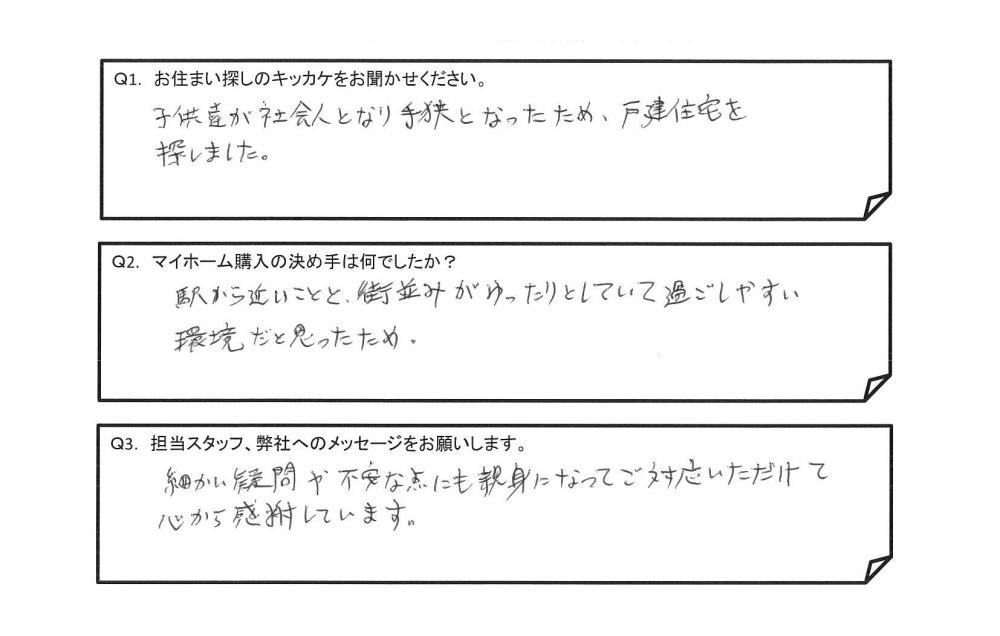 Q1. お住まい探しのキッカケをお聞かせください。
子供達が社会人となり手狭となったため、戸建住宅を
探しました。
Q2. マイホーム購入の決め手は何でしたか？
駅から近いことと、街並みがゆったりとしていて過ごしやすい
環境だと思ったため。
Q3. 担当スタッフ、弊社へのメッセージをお願いします。
細かい疑問や不安な点にも親身になってご対応いただけて
心から感謝しています。